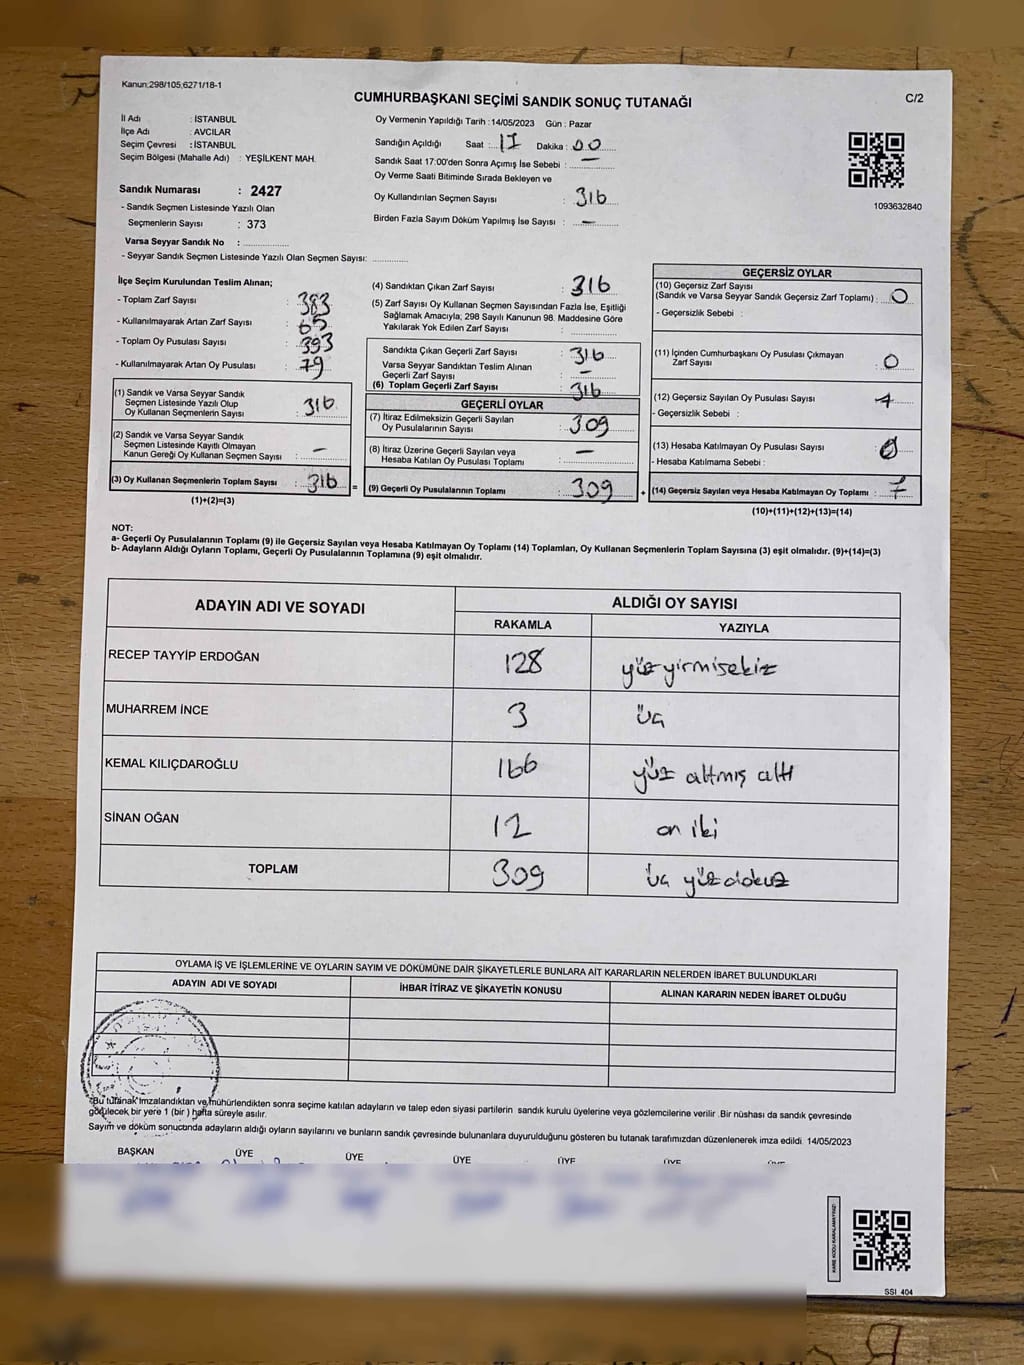 Kanun:298/105,6271/18-1
CUMHURBAŞKANI SEÇİMİ SANDIK SONUÇ TUTANAĞI
C/2
İl Adı : İSTANBUL
İlçe Adı : AVCILAR
Seçim Çevresi : İSTANBUL
Seçim Bölgesi (Mahalle Adı) : YEŞİLKENT MAH.
Sandık Numarası : 2427
- Sandık Seçmen Listesinde Yazılı Olan
Seçmenlerin Sayısı : 373
Varsa Seyyar Sandık No : ...............
- Seyyar Sandık Seçmen Listesinde Yazılı Olan Seçmen Sayısı: ............
Oy Vermenin Yapıldığı Tarih :14/05/2023 Gün : Pazar
Sandığın Açıldığı Saat :.. 17 Dakika : 00
Sandık Saat 17:00'den Sonra Açımış İse Sebebi : —
Oy Verme Saati Bitiminde Sırada Bekleyen ve
Oy Kullandırılan Seçmen Sayısı : 316
Birden Fazla Sayım Döküm Yapılmış İse Sayısı : —
1093632840
İlçe Seçim Kurulundan Teslim Alınan;
- Toplam Zarf Sayısı : 383
- Kullanılmayarak Artan Zarf Sayısı : 65
- Toplam Oy Pusulası Sayısı : 393
- Kullanılmayarak Artan Oy Pusulası : 79
(1) Sandık ve Varsa Seyyar Sandık
Seçmen Listesinde Yazılı Olup
Oy Kullanan Seçmenlerin Sayısı : 316
(2) Sandık ve Varsa Seyyar Sandık
Seçmen Listesinde Kayıtlı Olmayan
Kanun Gereği Oy Kullanan Seçmen Sayısı : —
(3) Oy Kullanan Seçmenlerin Toplam Sayısı : 316
(1)+(2)=(3)
=
(4) Sandıktan Çıkan Zarf Sayısı : 316
(5) Zarf Sayısı Oy Kullanan Seçmen Sayısından Fazla İse, Eşitliği
Sağlamak Amacıyla; 298 Sayılı Kanunun 98. Maddesine Göre
Yakılarak Yok Edilen Zarf Sayısı :
Sandıkta Çıkan Geçerli Zarf Sayısı : 316
Varsa Seyyar Sandıktan Teslim Alınan
Geçerli Zarf Sayısı : —
(6) Toplam Geçerli Zarf Sayısı : 316
GEÇERLİ OYLAR
(7) İtiraz Edilmeksizin Geçerli Sayılan
Oy Pusulalarının Sayısı : 309
(8) İtiraz Üzerine Geçerli Sayılan veya
Hesaba Katılan Oy Pusulası Toplamı : —
(9) Geçerli Oy Pusulalarının Toplamı : 309
+
GEÇERSİZ OYLAR
(10) Geçersiz Zarf Sayısı
(Sandık ve Varsa Seyyar Sandık Geçersiz Zarf Toplamı) : 0
- Geçersizlik Sebebi :
(11) İçinden Cumhurbaşkanı Oy Pusulası Çıkmayan
Zarf Sayısı : 0
(12) Geçersiz Sayılan Oy Pusulası Sayısı :
- Geçersizlik Sebebi :
(13) Hesaba Katılmayan Oy Pusulası Sayısı : 0
- Hesaba Katılmama Sebebi :
(14) Geçersiz Sayılan veya Hesaba Katılmayan Oy Toplamı : 7
(10)+(11)+(12)+(13)=(14)
NOT:
a- Geçerli Oy Pusulalarının Toplamı (9) ile Geçersiz Sayılan veya Hesaba Katılmayan Oy Toplamı (14) Toplamları, Oy Kullanan Seçmenlerin Toplam Sayısına (3) eşit olmalıdır. (9)+(14)=(3)
b- Adayların Aldığı Oyların Toplamı, Geçerli Oy Pusulalarının Toplamına (9) eşit olmalıdır.
ADAYIN ADI VE SOYADI
ALDIĞI OY SAYISI
RAKAMLA YAZIYLA
RECEP TAYYİP ERDOĞAN 128 yüz yirmi sekiz
MUHARREM İNCE 3 üç
KEMAL KILIÇDAROĞLU 166 yüz altmış altı
SİNAN OĞAN 12 on iki
TOPLAM 309 üç yüz dokuz
OYLAMA İŞ VE İŞLEMLERİNE VE OYLARIN SAYIM VE DÖKÜMÜNE DAİR ŞİKAYETLERLE BUNLARA AİT KARARLARIN NELERDEN İBARET BULUNDUKLARI
ADAYIN ADI VE SOYADI İHBAR İTİRAZ VE ŞİKAYETİN KONUSU ALINAN KARARIN NEDEN İBARET OLDUĞU
Bu tutanak imzalandıktan ve mühürlendikten sonra seçime katılan adayların ve talep eden siyasi partilerin sandık kurulu üyelerine veya gözlemcilerine verilir .Bir nüshası da sandık çevresinde
görülecek bir yere 1 (bir ) hafta süreyle asılır.
Sayım ve döküm sonucunda adayların aldığı oyların sayılarını ve bunların sandık çevresinde bulunanlara duyurulduğunu gösteren bu tutanak tarafımızdan düzenlenerek imza edildi. 14/05/2023
BAŞKAN ÜYE ÜYE ÜYE ÜYE ÜYE
KARE KODU KARALAMAYINIZ!
SSI_404